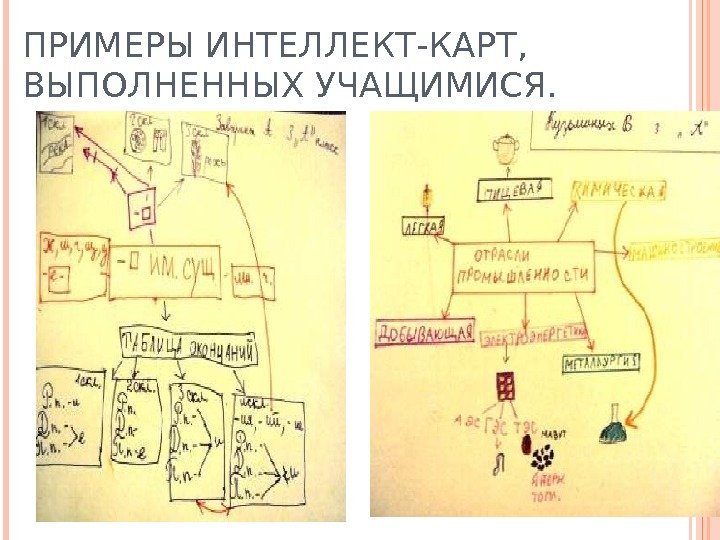 ПРИМЕРЫ ИНТЕЛЛЕКТ-КАРТ,
ВЫПОЛНЕННЫХ УЧАЩИМИСЯ.
1 скл
2 скл
3 скл
А 3 „А" класс
рожь
-□
ж, ш, ч, щ, ц
-е-
-□ ИМ. СУЩ.
мн. ч.
ТАБЛИЦА ОКОНЧАНИЙ
1 скл.
Р.п.-и
Д.п.-
П.п.->е
2 скл.
Р.п.
Д.п.-
П.п.-е
3 скл.
Р.п.-
Д.п.-
П.п.-
и
искл.
-ия, -ий, -
Р.п.
Д.п.-
П.п.-
и
В 3 „А"
ПИЩЕВАЯ
ХИМИЧЕСКАЯ
ЛЕГКАЯ
ОТРАСЛИ
ПРОМЫШЛЕННОСТИ
МАШИНОСТРОЕНИЕ
ДОБЫВАЮЩАЯ
ЭЛЕКТРОЭНЕРГЕТИКА
МЕТАЛЛУРГИЯ
АЭС ГЭС ТЭС
МАЗУТ
ЯДЕРН.
ТОПЛ.